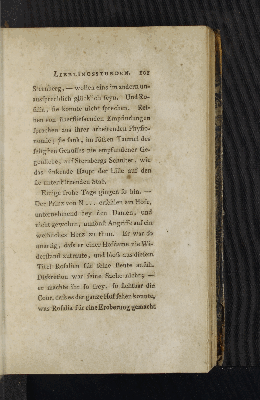 LIEBLINGSSTUNDEN. 201
Sternberg, — wollen eins im andern un-
aussprechlich glücklich seyn. Und Ro-
salia, sie konnte nicht sprechen.
nen von überfliessenden Empfindungen
sprachen aus ihrer arbeitenden Physio-
nomie; sie sank, im süssen Taumel des
seligsten Genusses nie empfundener Ge-
genliebe, auf Sternbergs Schulter, wie
das sinkende Haupt der Lilie auf den
sie unterstützenden Stab.
Einige frohe Tage gingen so hin. —
Der Prinz von N... erschien am Hofe,
unternehmend bey den Damen, und
nicht gewohnt, umsonst Angriffe auf ein
weibliches Herz zu thun. Er war so
unartig, dass er einer Hofdame nie Wie-
derstand zutraute, und hielt aus diesem
Titel Rosalien für seine Beute
Diskretion war seine Sache nicht; —
er machte ihr so frey, so sichtbar die
Cour, dass es der ganze Hof sehen konnte,
was Rosalia für eine Eroberung gemacht